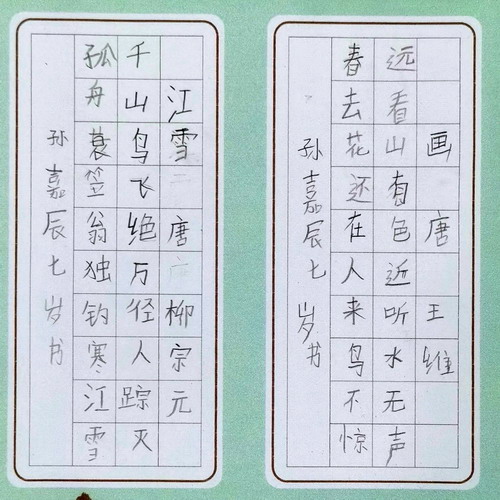 画 唐 王维
远看山有色近听水无声
春去花还在人来鸟不惊
孙嘉辰七岁书
江雪 唐 柳宗元
千山鸟飞绝万径人踪灭
孤舟蓑笠翁独钓寒江雪
孙嘉辰七岁书